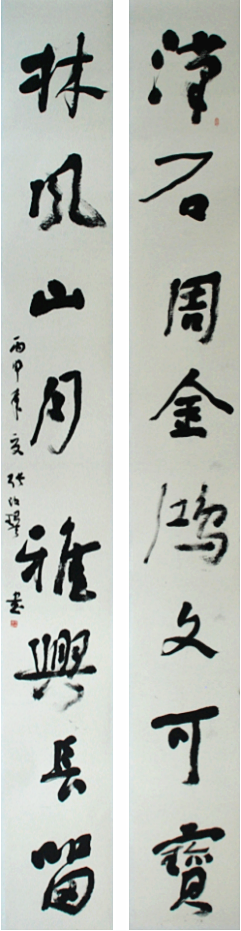 漢石周金鴻文可寶
林風山月雅興長留
丙申年夏